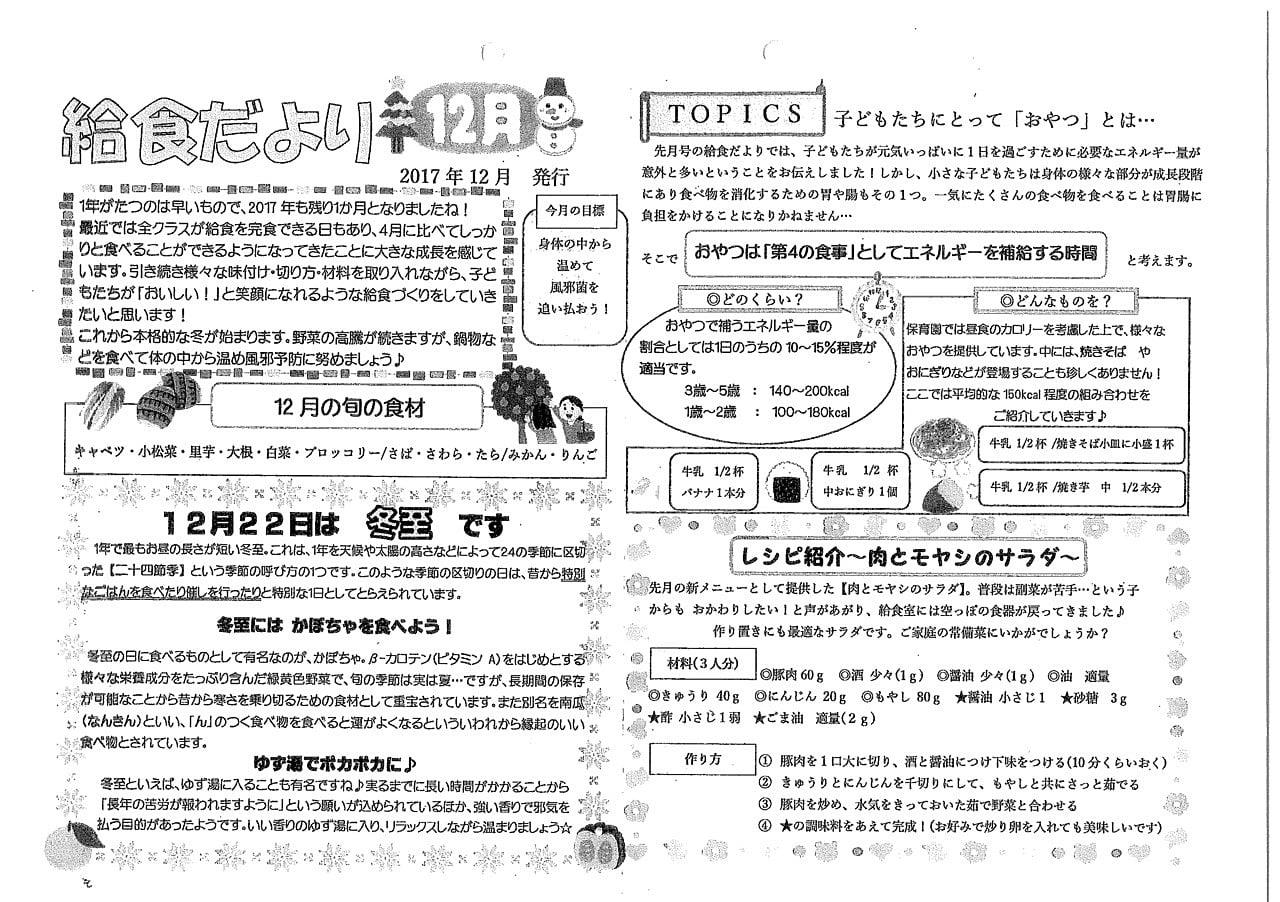 給食だより
12月
2017年12月 発行
1年がたつのは早いもので、2017年も残り1か月となりましたね！
最近では全クラスが給食を完食できる日もあり、4月に比べてしっか
りと食べることができるようになってきたことに大きな成長を感じて
います。引き続き様々な味付け・切り方・材料を取り入れながら、子ど
もたちが「おいしい！」と笑顔になれるような給食づくりをしていき
たいと思います！
これから本格的な冬が始まります。野菜の高騰が続きますが、鍋物な
どを食べて体の中から温め風邪予防に努めましょう♪
今月の目標
身体の中から
温めて
風邪菌を
追い払おう！
12月の旬の食材
キャベツ・小松菜・里芋・大根・白菜・ブロッコリー/さば・さわら・たら/みかん・りんご
12月22日は 冬至 です
1年で最もお昼の長さが短い冬至。これは、1年を天候や太陽の高さなどによって24の季節に区切
った【二十四節季】という季節の呼び方の1つです。このような季節の区切りの日は、昔から特別
なごはんを食べたり催しを行ったりと特別な1日としてとらえられています。
冬至には かぼちゃを食べよう！
冬至の日に食べるものとして有名なのが、かぼちゃ。β-カロテン(ビタミン A)をはじめとする
様々な栄養成分をたっぷり含んだ緑黄色野菜で、旬の季節は実は夏…ですが、長期間の保存
が可能なことから昔から寒さを乗り切るための食材として重宝されています。また別名を南瓜
(なんきん)といい、「ん」のつく食べ物を食べると運がよくなるといういわれから縁起のいい
食べ物とされています。
ゆず湯でポカポカに♪
冬至といえば、ゆず湯に入ることも有名ですね♪実るまでに長い時間がかかることから
「長年の苦労が報われますように」という願いが込められているほか、強い香りで邪気を
払う目的があったようです。いい香りのゆず湯に入り、リラックスしながら温まりましょう☆
TOPICS
子どもたちにとって「おやつ」とは…
先月号の給食だよりでは、子どもたちが元気いっぱいに1日を過ごすために必要なエネルギー量が
意外と多いということをお伝えしました！しかし、小さな子どもたちは身体の様々な部分が成長段階
にあり食べ物を消化するための胃や腸もその1つ。一気にたくさんの食べ物を食べることは胃腸に
負担をかけることになりかねません…
そこで おやつは「第4の食事」としてエネルギーを補給する時間 と考えます。
◎どのくらい？
おやつで補うエネルギー量の
割合としては1日のうちの 10〜15%程度が
適当です。
3歳〜5歳 ： 140〜200kcal
1歳〜2歳 ： 100〜180kcal
◎どんなものを？
保育園では昼食のカロリーを考慮した上で、様々な
おやつを提供しています。中には、焼きそば や
おにぎりなどが登場することも珍しくありません！
ここでは平均的な 150kcal 程度の組み合わせを
ご紹介していきます♪
牛乳 1/2杯 /焼きそば小皿に小盛1杯
牛乳 1/2杯 /焼き芋 中 1/2本分
牛乳 1/2杯
バナナ1本分
牛乳 1/2 杯
中おにぎり1個
レシピ紹介〜肉とモヤシのサラダ〜
先月の新メニューとして提供した【肉とモヤシのサラダ】。普段は副菜が苦手…という子
からも おかわりしたい！と声があがり、給食室には空っぽの食器が戻ってきました♪
作り置きにも最適なサラダです。ご家庭の常備菜にいかがでしょうか？
材料(3人分)
◎豚肉 60g ◎酒 少々(1g) ◎醤油 少々(1g) ◎油 適量
◎きゅうり 40g ◎にんじん 20g ◎もやし 80g ★醤油 小さじ1 ★砂糖 3g
★酢 小さじ1弱 ★ごま油 適量(2g)
作り方
① 豚肉を1口大に切り、酒と醤油につけ下味をつける(10分くらいおく)
② きゅうりとにんじんを千切りにして、もやしと共にさっと茹でる
③ 豚肉を炒め、水気をきっておいた茹で野菜と合わせる
④ ★の調味料をあえて完成！(お好みで炒り卵を入れても美味しいです)